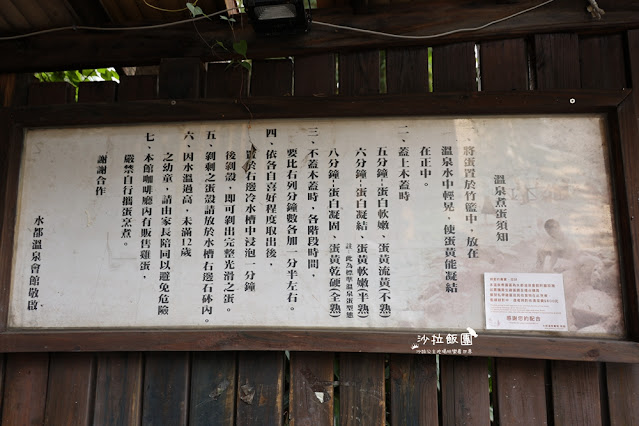 溫泉煮蛋須知
一、將蛋置於竹籃中，放在
溫泉水中輕晃，使蛋黃能凝結
在正中。
二、蓋上木蓋時
五分鐘--蛋白軟嫩、蛋黃流黃(不熟)
六分鐘--蛋白凝結、蛋黃軟嫩(半熟)
註：此為標準溫泉蛋型態
八分鐘--蛋白凝固、蛋黃乾硬(全熟)
三、不蓋木蓋時，各階段時間，
要比右列分鐘數各加一分半左右。
四、依各自喜好程度取出後，
置於右邊冷水槽中浸泡一分鐘
後剝殼，即可剝出完整光滑之蛋。
五、剝剩之蛋殼請放於水槽右邊石砵內。
六、因水溫過高，未滿12歲
之幼童，請由家長陪同以避免危險
七、本館咖啡廳內有販售雞蛋，
嚴禁自行攜蛋烹煮。
謝謝合作
水都溫泉會館敬啟
感謝您的配合
沙拉飯團